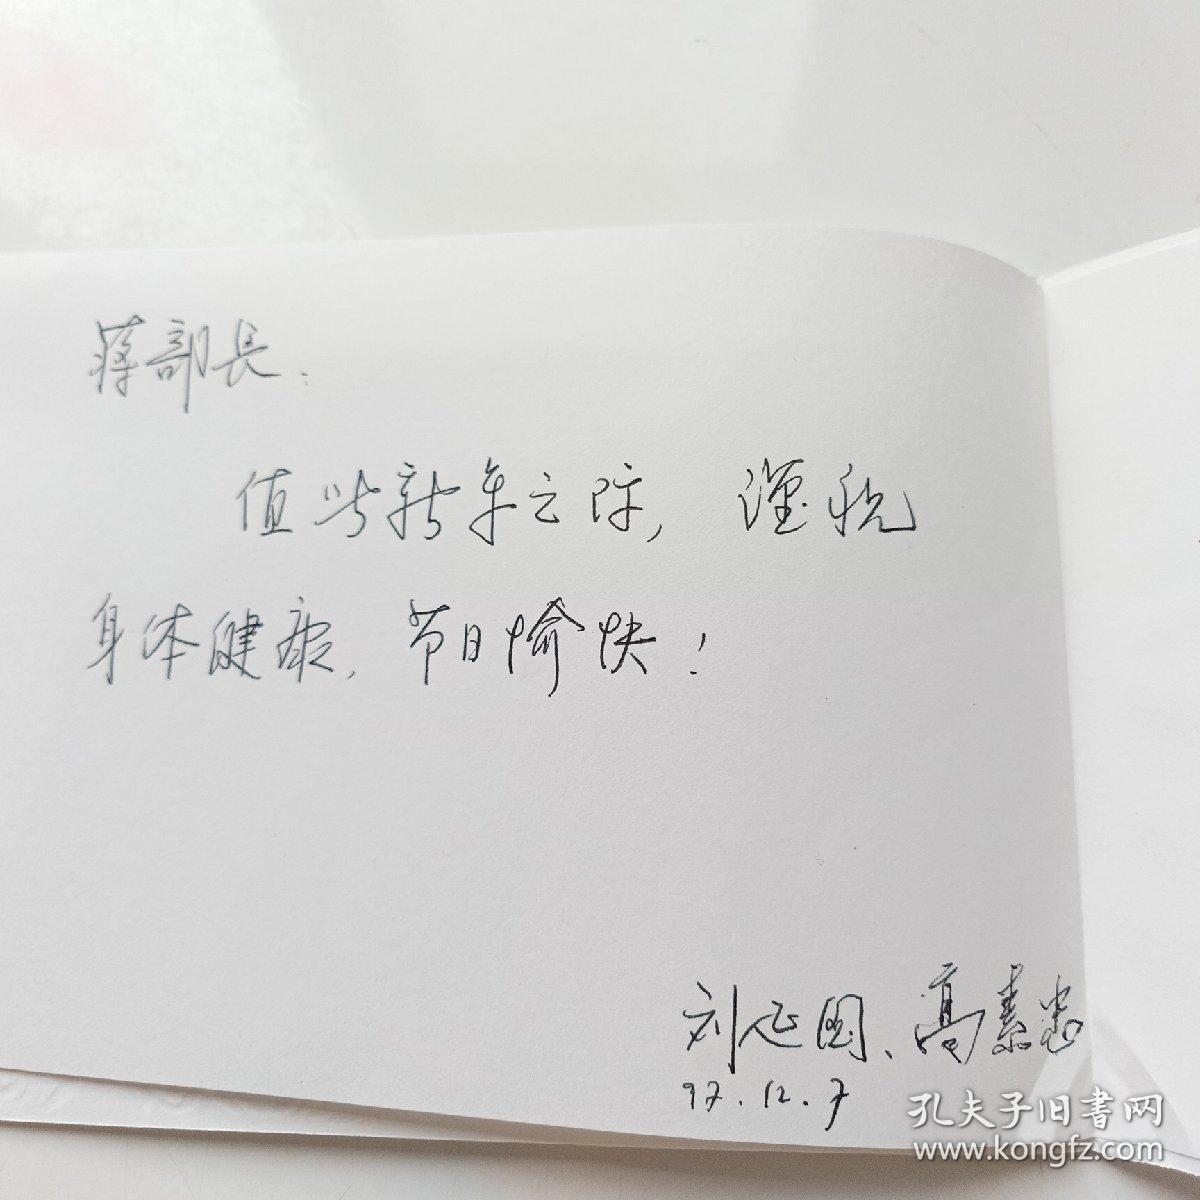 蒋部长:
值此新年之际, 谨祝
身体健康, 节日愉快!
刘延国、高素忠
97.12.7
孔夫子旧书网
www.kongfz.com